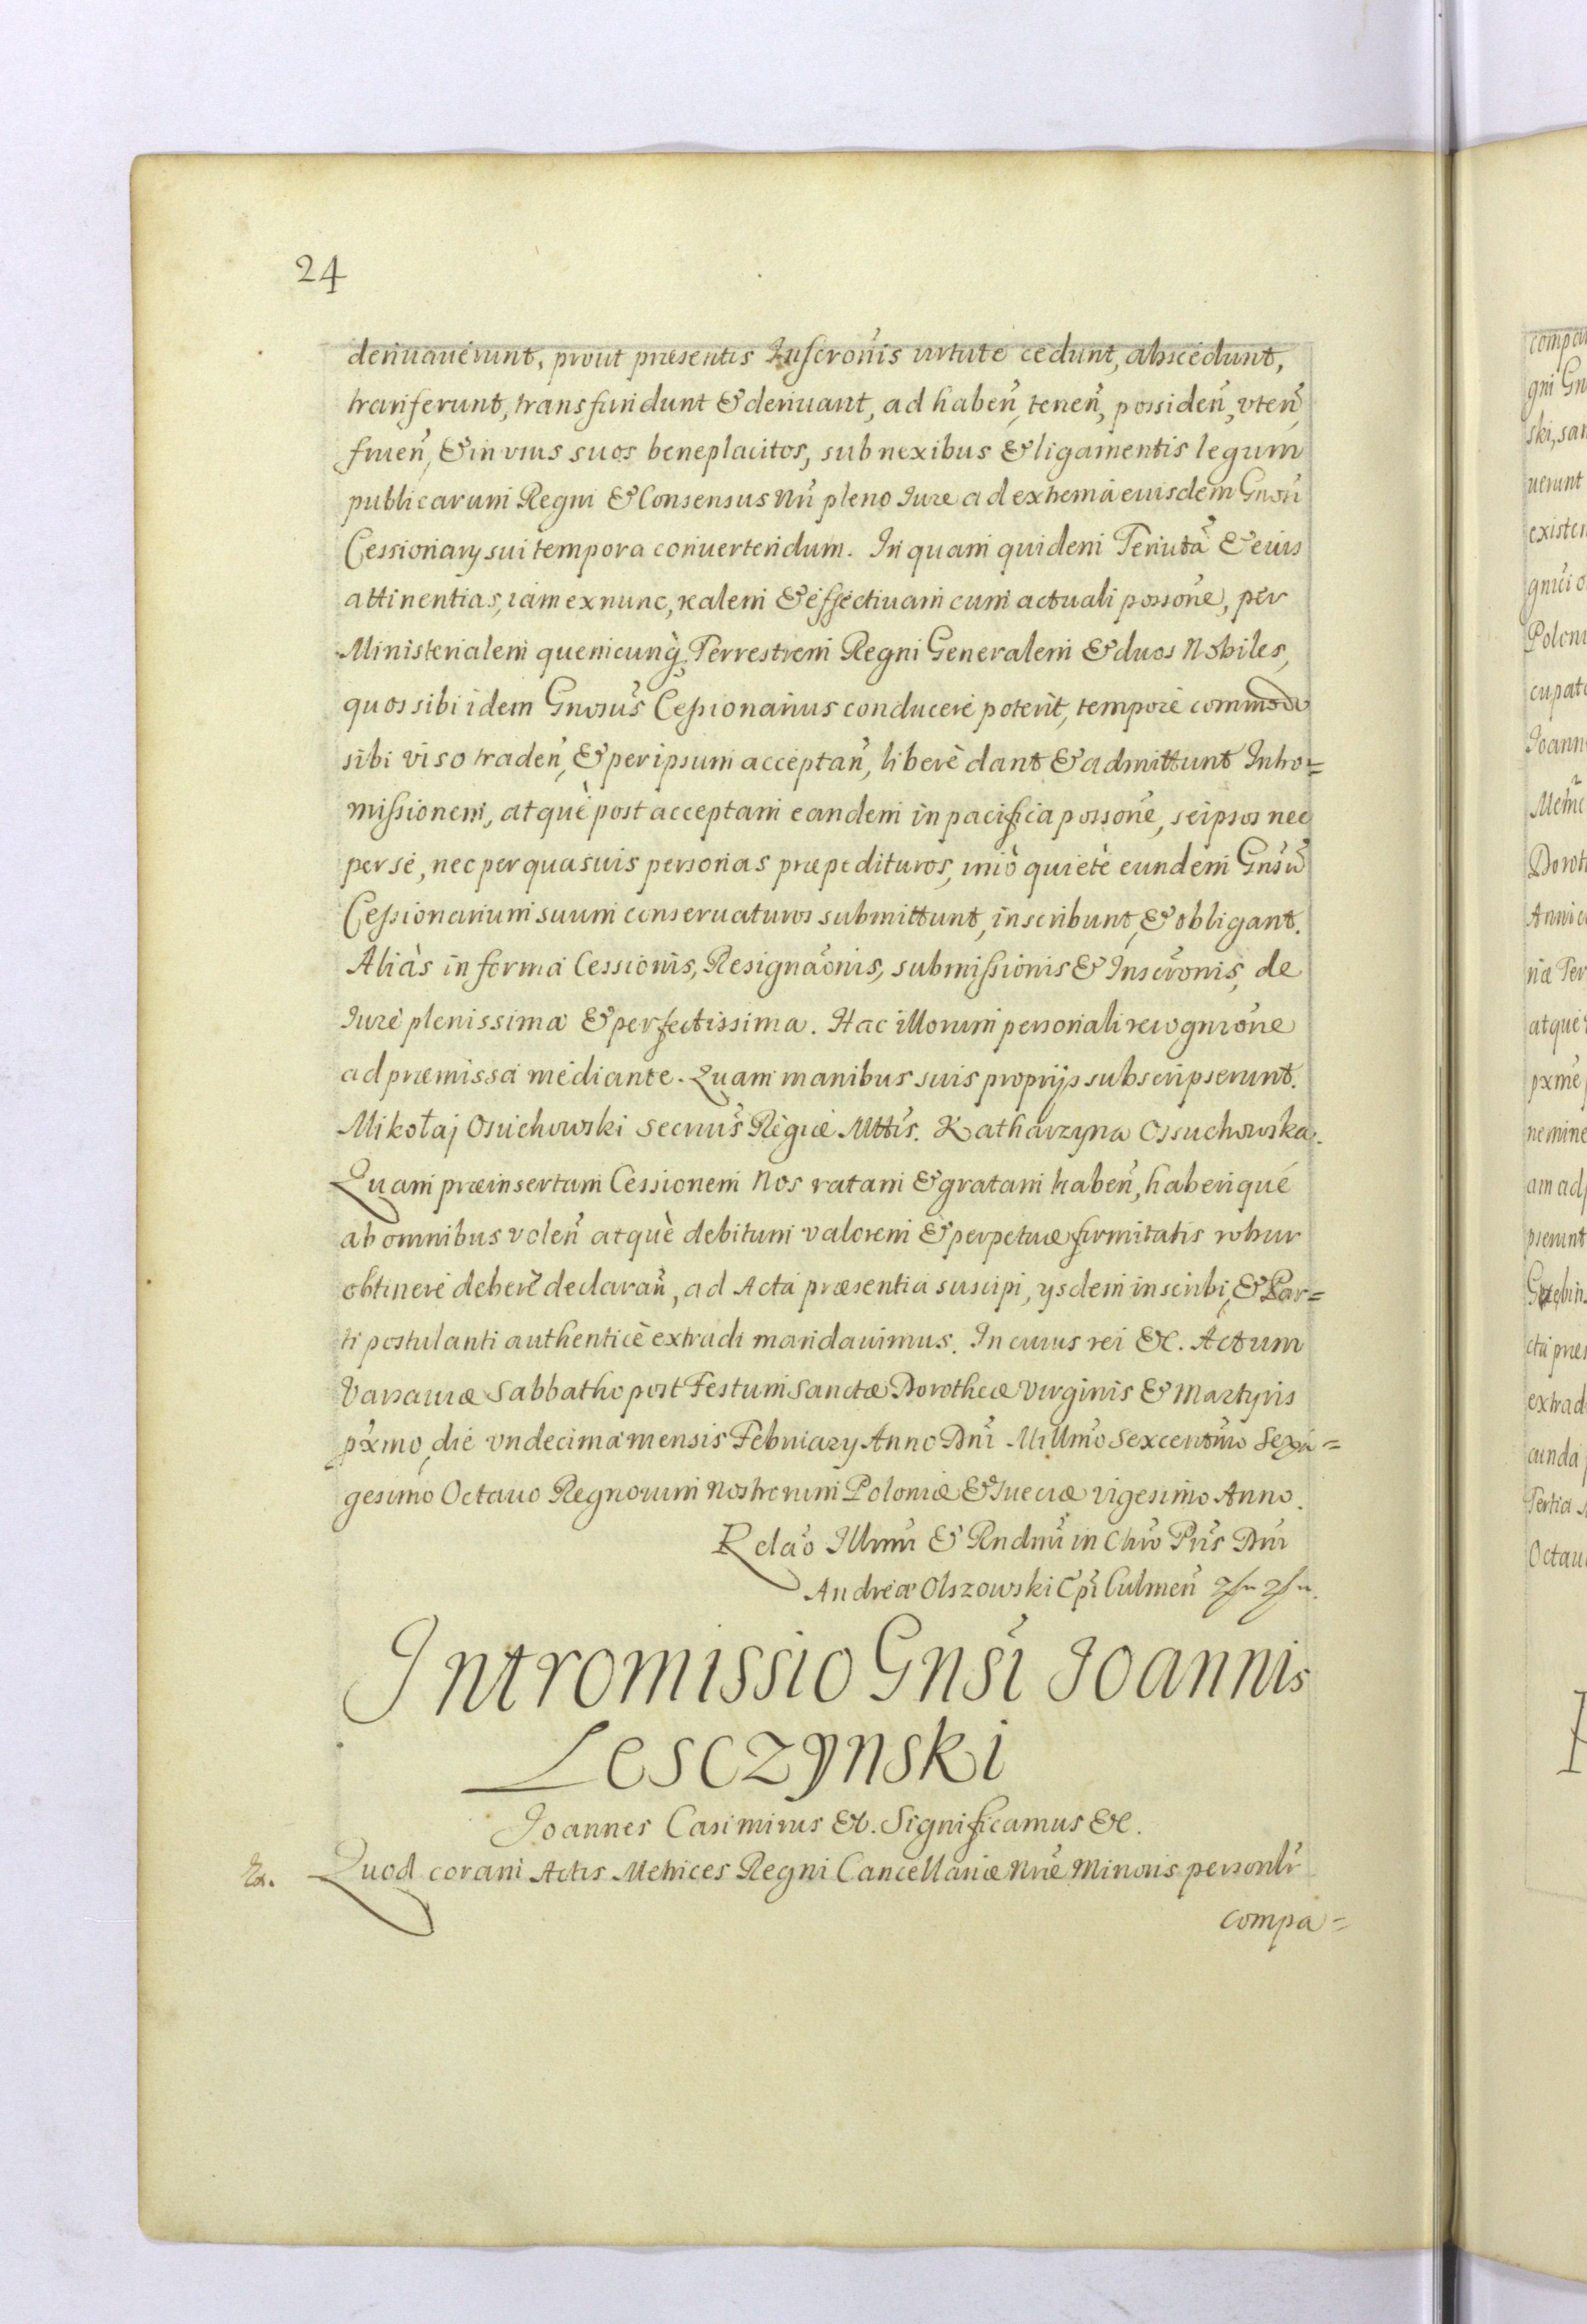 24
deriuauerunt, prout præsentis Inscronis virtute cedunt, abscedunt,
transferunt, transfundunt & deriuant, ad haben, tenen, possiden, vten,
fruen, & in vsus suos beneplacitos, sub nexibus & ligamentis legum
publicarum Regni & Consensus Nri pleno Iure ad extrema eiusdem Gnosi
Cessionarij sui tempora conuertendum. In quam quidem Tenutã & eius
attinentias, iam ex nunc, realem & effectiuam cum actuali possone, per
Ministerialem quemcunq Terrestrem Regni Generalem & duos Nobiles,
quos sibi idem Gnosus Cessionarius conducere poterit, tempore commodo
sibi viso traden, & per ipsum acceptan, liberè dant & admittunt Intro=
missionem, atquè post acceptam eandem in pacifica possone, seipsos nec
per se, nec per quasuis personas præpedituros, imò quietè eundem Gnsũ
Cessionarium suum conseruaturos submittunt, inscribunt, & obligant.
Aliàs in forma Cessionis, Resignaonis, submissionis & Inscronis, de
Iure plenissima & perfectissima. Hac illorum personali recognione
ad præmissa mediante. Quam manibus suis proprijs subscripserunt.
Mikołaj Osuchowski Secrius Regiæ Mttis. Katharzyna Ossuchowska.
Quam præinsertam Cessionem Nos ratam & gratam haben, haberique
ab omnibus volen atquè debitum valorem & perpetuæ firmitatis robur
obtinere debere declaran, ad Acta præsentia suscipi, ysdem inscribi, & Par=
ti postulanti authenticè extradi mandauimus. In cuius rei &c. Actum
Varsauiæ Sabbatho post Festum Sanctæ Dorotheæ Virginis & Martyris
pxmo, die vndecima mensis Februarij Anno Dni Millmo Sexcentmo Sexa=
gesimo Octauo Regnorum Nostrorum Poloniæ & Sueciæ vigesimo Anno.
Relao Illmi & Rndmi in Chro Pris Dni
Andreæ Olszowski Epi Culmen
Intromissio Gnsi Joannis
Lesczynski
Joannes Casimirus &c. Significamus &c.
Ex. Quod coram Actis Metrices Regni Cancellariæ Nræ Minoris personlr
compa=